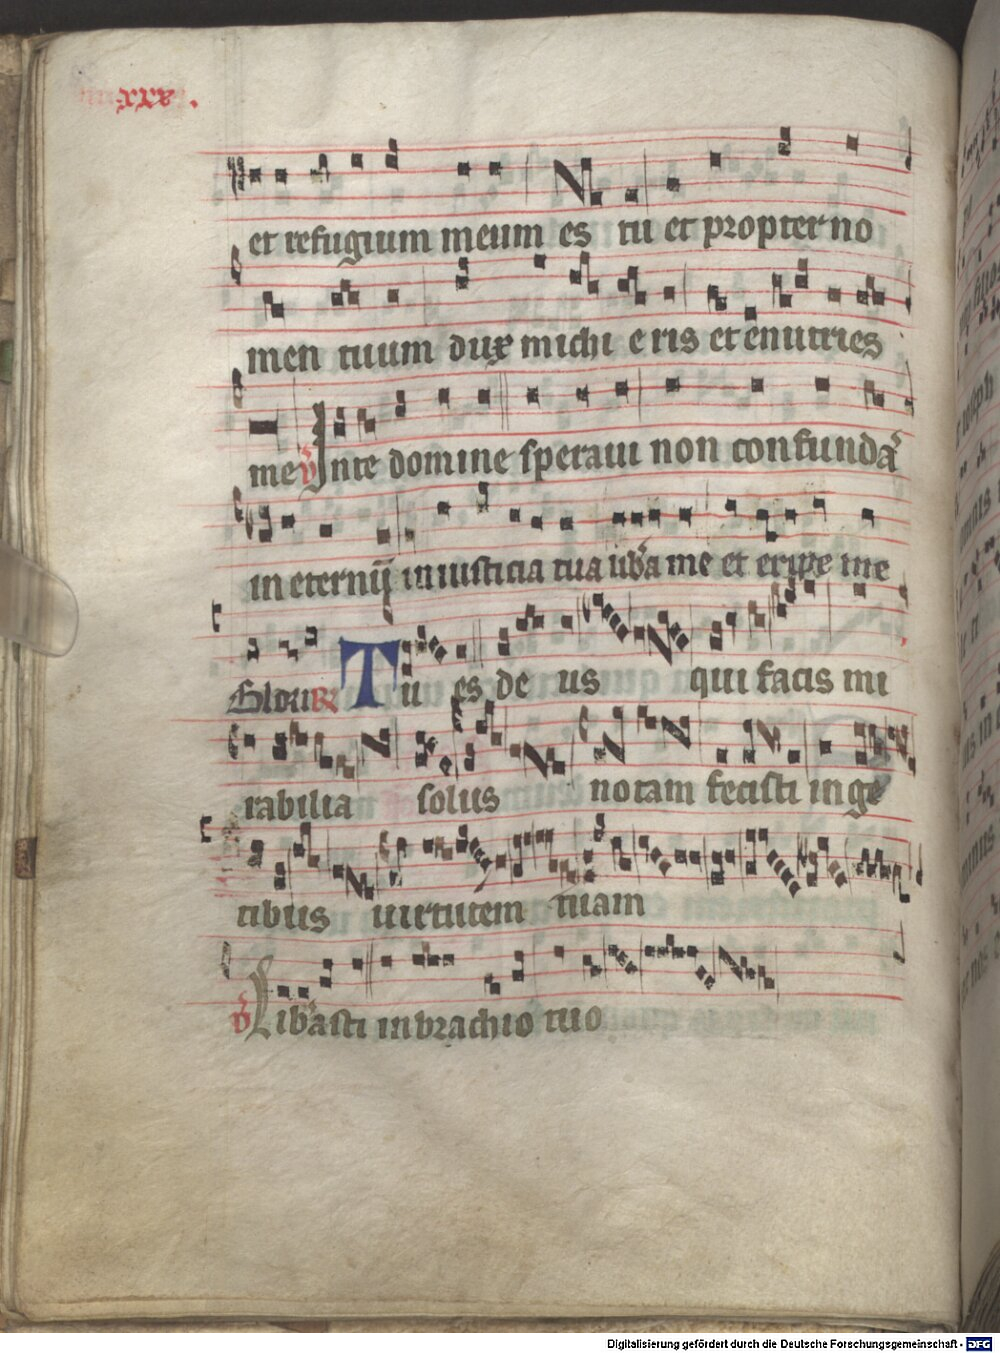 xxx
et refugium meum es tu et propter no
men tuum dux michi eris et enutries
me V Inte domine speraui non confundar
in eternum in iusticia tua libera me et eripe me
Glori R Tu es deus qui facis mi
rabilia solus notam fecisti in ge
tibus uirtutem tuam
V Liberasti in brachio tuo
Digitalisierung gefördert durch die Deutsche Forschungsgemeinschaft - DFG